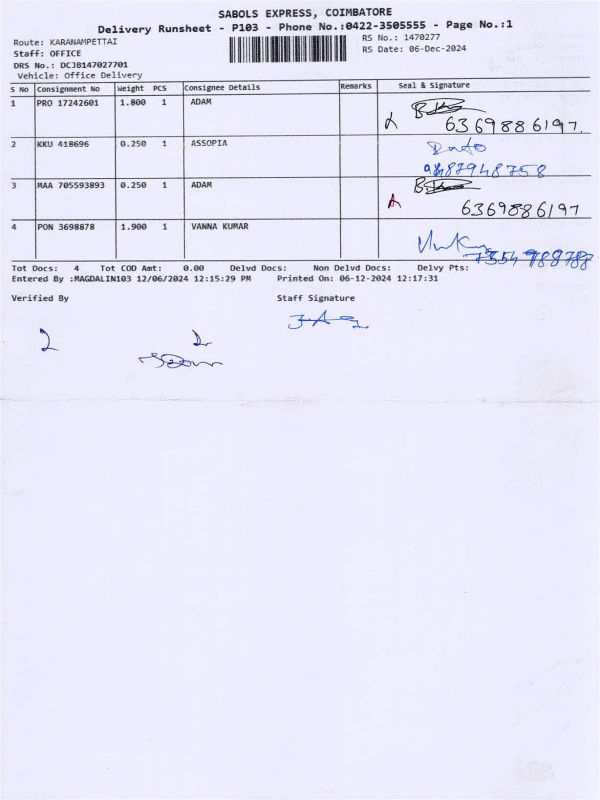 SABOLS EXPRESS, COIMBATORE
Delivery Runsheet - P103 - Phone No.:0422-3505555 - Page No.:1
Route: KARANAMPETTAI
RS No.: 1470277
Staff: OFFICE
RS Date: 06-Dec-2024
DRS No.: DCJB147027701
Vehicle: Office Delivery
S No Consignment No Weight PCS Consignee Details Remarks Seal & Signature
1 PRO 17242601 1.800 1 ADAM
6369886197
2 KKU 418696 0.250 1 ASSOPIA
3 MAA 705593893 0.250 1 ADAM
6369886197
4 PON 3698878 1.900 1 VANNA KUMAR
Tot Docs: 4 Tot COD Amt: 0.00 Delvd Docs: Non Delvd Docs: Delvy Pts:
Entered By :MAGDALIN103 12/06/2024 12:15:29 PM Printed On: 06-12-2024 12:17:31
Verified By Staff Signature
2 2